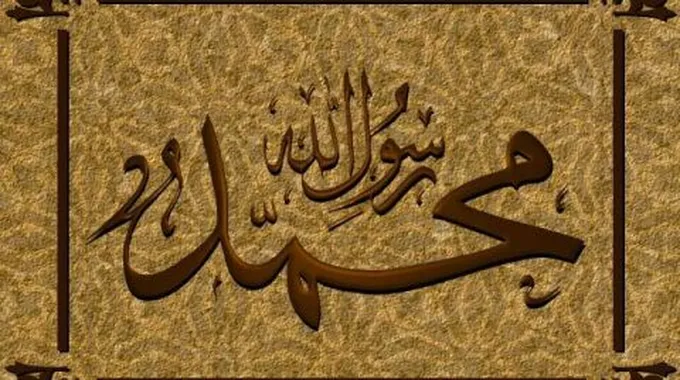 محمد رسول الله